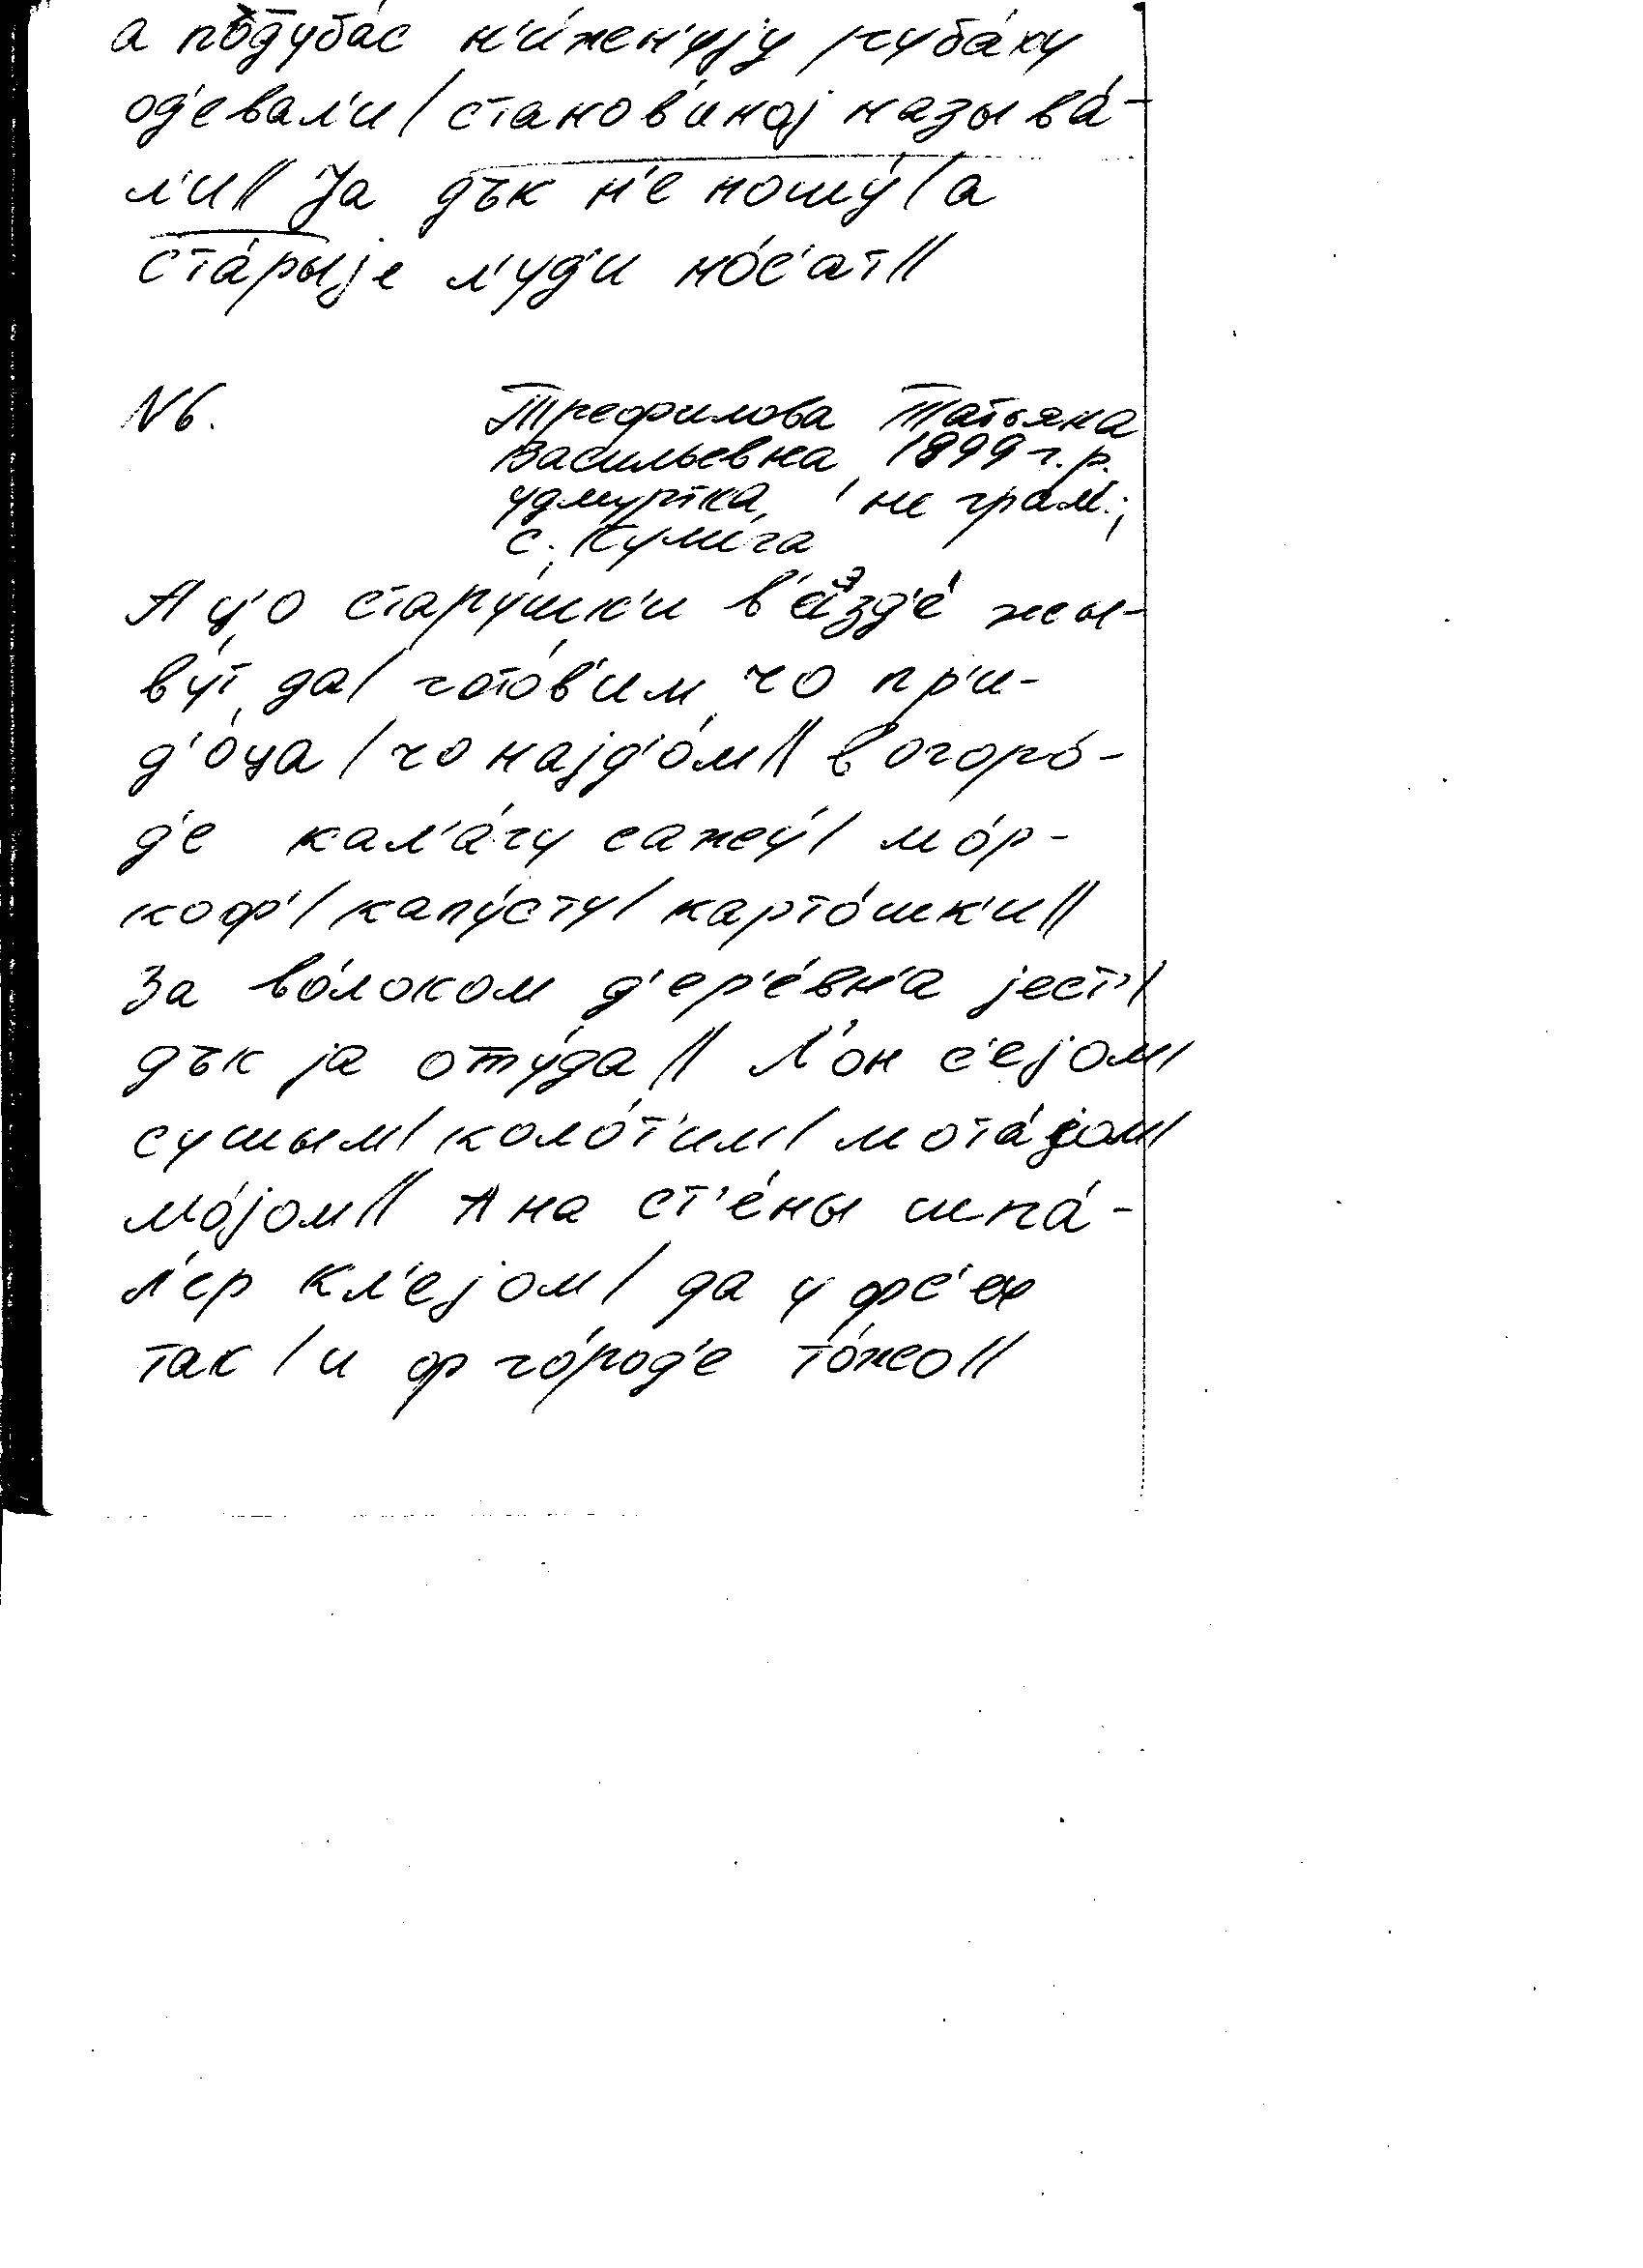 а подуба́с н'и́жен'уjу руба́ху
од'евал'и / станов'иноj называ́-
л'и // Jа дък н'е ношу́ / а
ста́рыjе л'уд'и но́с'ат //
N6. Трефилова Татьяна
Васильевна 1899 г.р.
удмуртка, не грам.;
с. Кулига
А ц'о стару́шк'и в'еэзд'е́ жы-
ву́т да / гото́в'им чо пр'и-
д'о́ца / чо наjд'о́м // в огоро́-
д'е кал'а́гу сажу́ / мо́р-
коф' / капу́сту / карто́шк'и //
За во́локом д'ер'е́вн'а jест' /
дък jа оту́да // Л'он с'еjом /
сушым / коло́т'им / мота́jом /
мо́jом // А на ст'е́ны шпа́-
л'ер кл'еjом / да у фс'ех
так / и ф го́род'е то́жо //